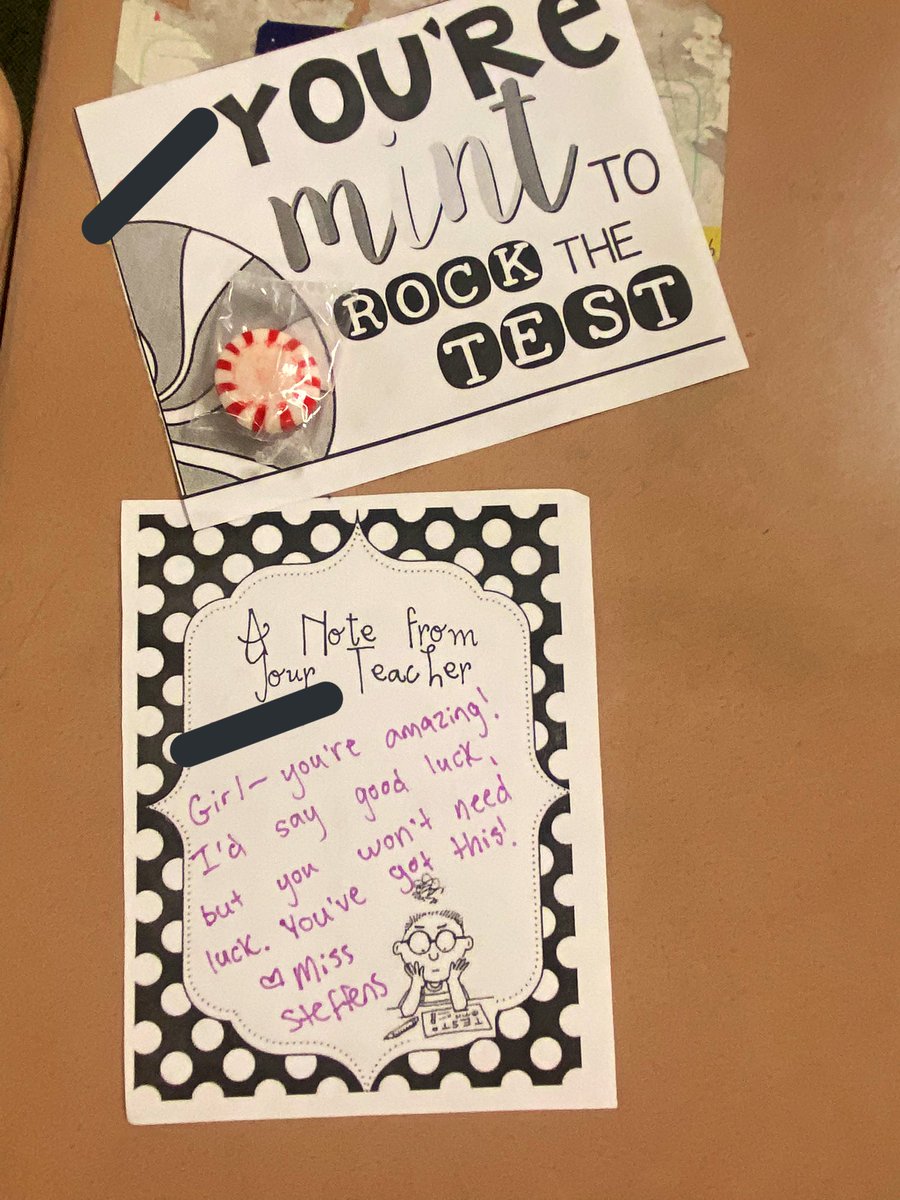 YOU'Re
mint TO
ROCK THE
TEST
A Note from
Your Teacher
Girl- you're amazing!
I'd say good luck,
but you won't need
luck. You've got this!
♡ Miss
Steffens
TEST: